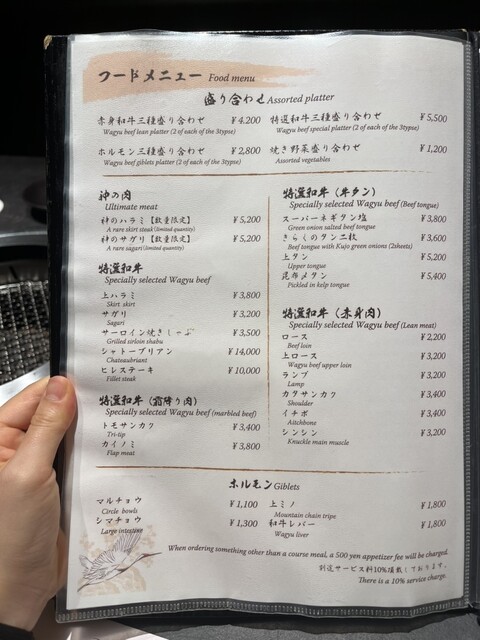 フードメニュー Food menu
盛り合わせ Assorted platter
赤身和牛三種盛り合わせ ¥4,200
Wagyu beef lean platter (2 of each of the 3typse)
ホルモン三種盛り合わせ ¥2,800
Wagyu beef giblets platter (2 of each of the 3typse)
特選和牛三種盛り合わせ ¥5,500
Wagyu beef special platter (2 of each of the 3typse)
焼き野菜盛り合わせ ¥1,200
Assorted vegetables
神の肉
Ultimate meat
神のハラミ【数量限定】 ¥5,200
A rare skirt steak (limited quantity)
神のサガリ【数量限定】 ¥5,200
A rare sagari (limited quantity)
特選和牛
Specially selected Wagyu beef
上ハラミ ¥3,800
Skirt skirt
サガリ ¥3,200
Sagari
サーロイン焼きしゃぶ ¥3,500
Grilled sirloin shabu
シャトーブリアン ¥14,000
Chateaubriant
ヒレステーキ ¥10,000
Fillet steak
特選和牛（霜降り肉）
Specially selected Wagyu beef (marbled beef)
トモサンカク ¥3,400
Tri-tip
カイノミ ¥3,800
Flap meat
特選和牛（牛タン）
Specially selected Wagyu beef (Beef tongue)
スーパーネギタン塩 ¥3,800
Green onion salted beef tongue
きらくのタン二枚 ¥3,600
Beef tongue with Kujo green onions (2sheets)
上タン ¥5,200
Upper tongue
昆布〆タン ¥5,400
Pickled in kelp tongue
特選和牛（赤身肉）
Specially selected Wagyu beef (Lean meat)
ロース ¥2,200
Beef loin
上ロース ¥3,200
Wagyu beef upper loin
ランプ ¥3,200
Lamp
カタサンカク ¥3,400
Shoulder
イチボ ¥3,400
Aitchbone
シンシン ¥3,200
Knuckle main muscle
ホルモン Giblets
マルチョウ ¥1,100
Circle bowls
シマチョウ ¥1,300
Large intestine
上ミノ ¥1,800
Mountain chain tripe
和牛レバー ¥1,800
Wagyu liver
When ordering something other than a course meal, a 500 yen appetizer fee will be charged.
別途サービス料10%頂戴しております。
There is a 10% service charge.